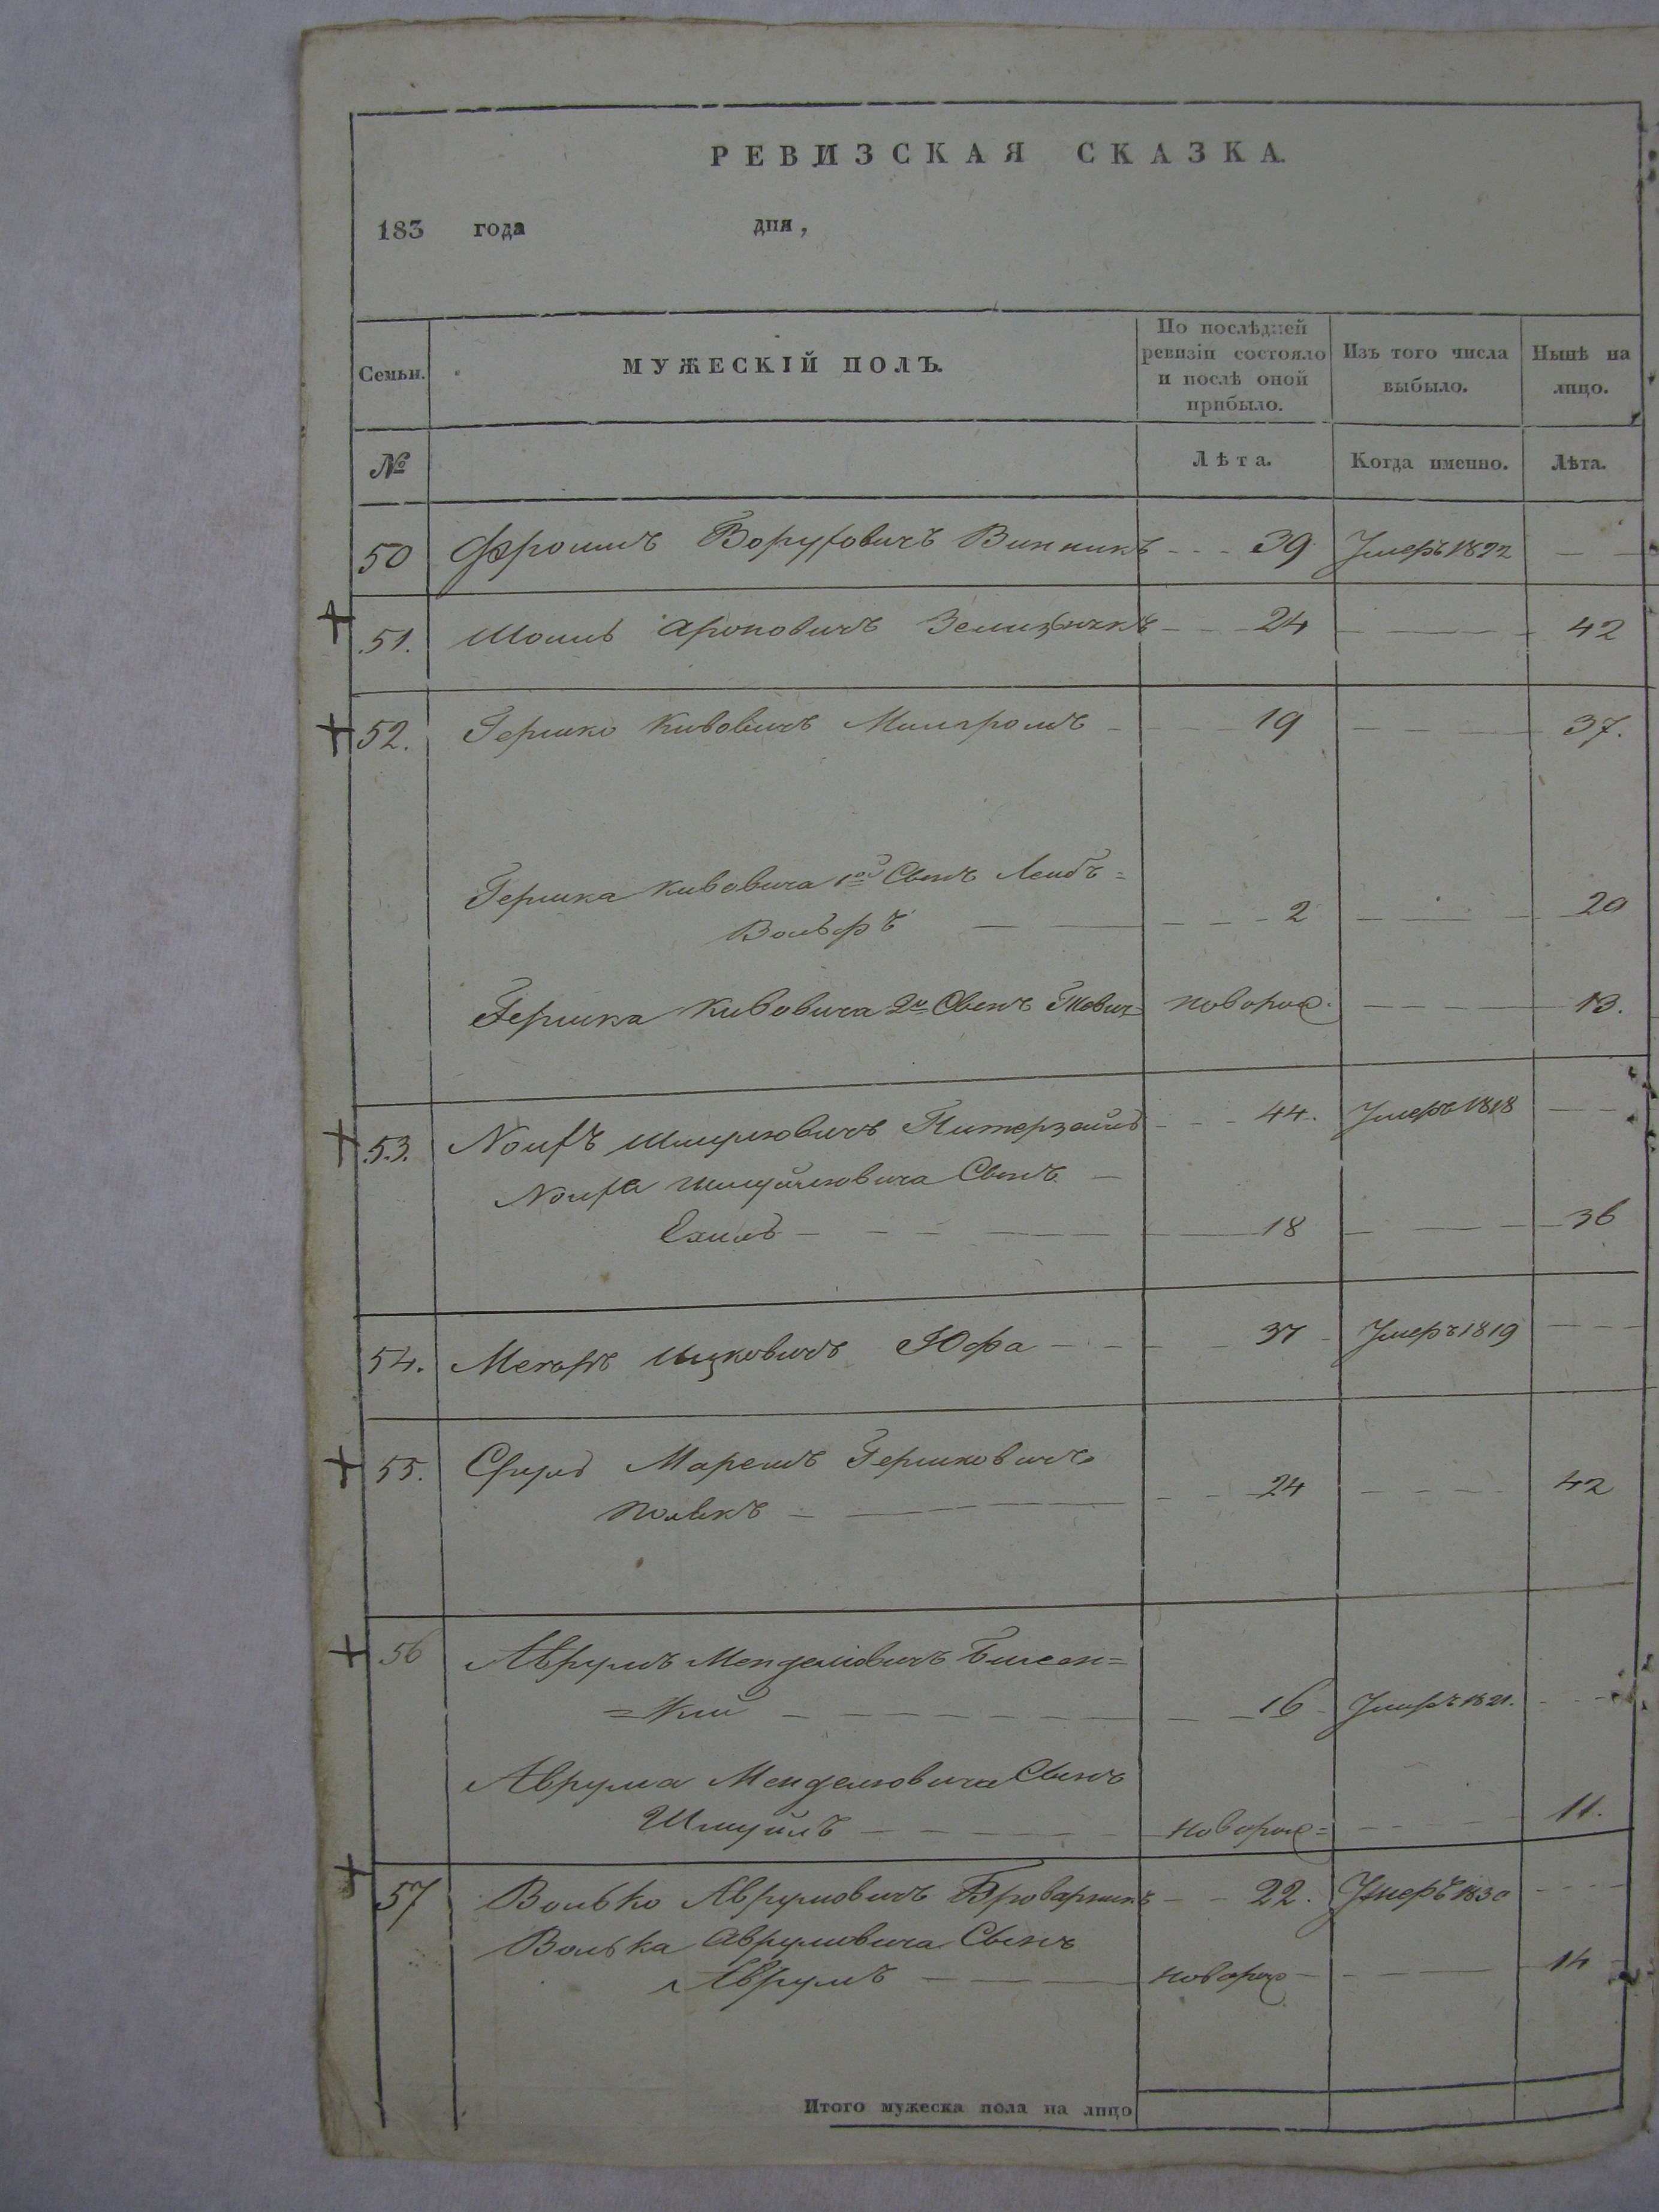 РЕВИЗСКАЯ СКАЗКА.
183 года дня,
Семьи. МУЖЕСКІЙ ПОЛЪ. По послѣдней ревизіи состояло и послѣ оной прибыло. Изъ того числа выбыло. Нынѣ на лицо.
№ Лѣта. Когда именно. Лѣта.
50 Фроимъ Боруховичъ Винникъ - - - 39 Умеръ 1822 — —
51. Шоиль Ароновичъ - - 24 — — 42
52. Гершко Кивовичъ Милгромъ - - - 19 — — — 37.
Гершка Кивовича 1ой Сынъ Лейбъ=
Вольфъ — — - - - 2 — — — 20
Гершка Кивовича 2й Сынъ новорож. — — — 13.
53. Шмулювичъ - - - 44. Умеръ 1818 — —
Шмуйлювича Сынъ —
Ехиль — — — — — 18 — — — 36
54. Ицковичъ Юфа — — — 37 - Умеръ 1819 — — —
55. Сруль Мареимъ Гершковичъ
Полякъ — — — — — 24 — — — 42
56 Аврумъ Менделювичъ
=кий — — — — — 16 - Умеръ 1821. - - -
Аврума Менделювича Сынъ
Шмуйлъ — — — — новорож= - - — 11.
57 Волько Аврумовичъ Броварникъ — - 22. Умеръ 1830 - - - -
Волька Аврумовича Сынъ
Аврумъ — — — новорож — — — 14 -
Итого мужеска пола на лицо